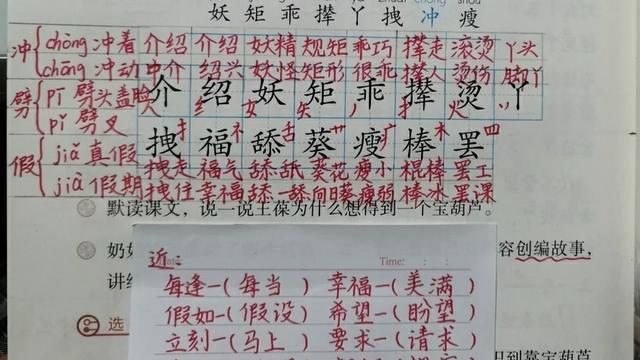 妖 矩 乖 撵 丫 拽 冲 瘦
冲 chòng 冲着 介绍 介绍 妖精 规矩 乖巧 撵走 滚烫 丫头
chōng 冲动 中介 绍兴 妖怪 矩形 很乖 撵人 烫伤 脚丫
劈 pī 劈头盖脸
pǐ 劈叉
介 绍 妖 矩 乖 撵 烫 丫
人 纟 女 矢 丿 扌 火
扌 礻 舌 艹 疒 木 罒
拽 福 舔 葵 瘦 棒 罢
假 jiǎ 真假 拽走 福气 舔舐 葵花 瘦小 棍棒 罢工
jià 假期 拽住 幸福 舔一舔 向日葵 瘦弱 棒冰 罢课
默读课文，说一说王葆为什么想得到一个宝葫芦。
奶奶
容创编故事，
讲给
选
近
Time:
每逢—(每当) 幸福—(美满)
假如—(假设) 希望—(盼望)
立刻—(马上) 要求—(请求)
靠宝葫芦